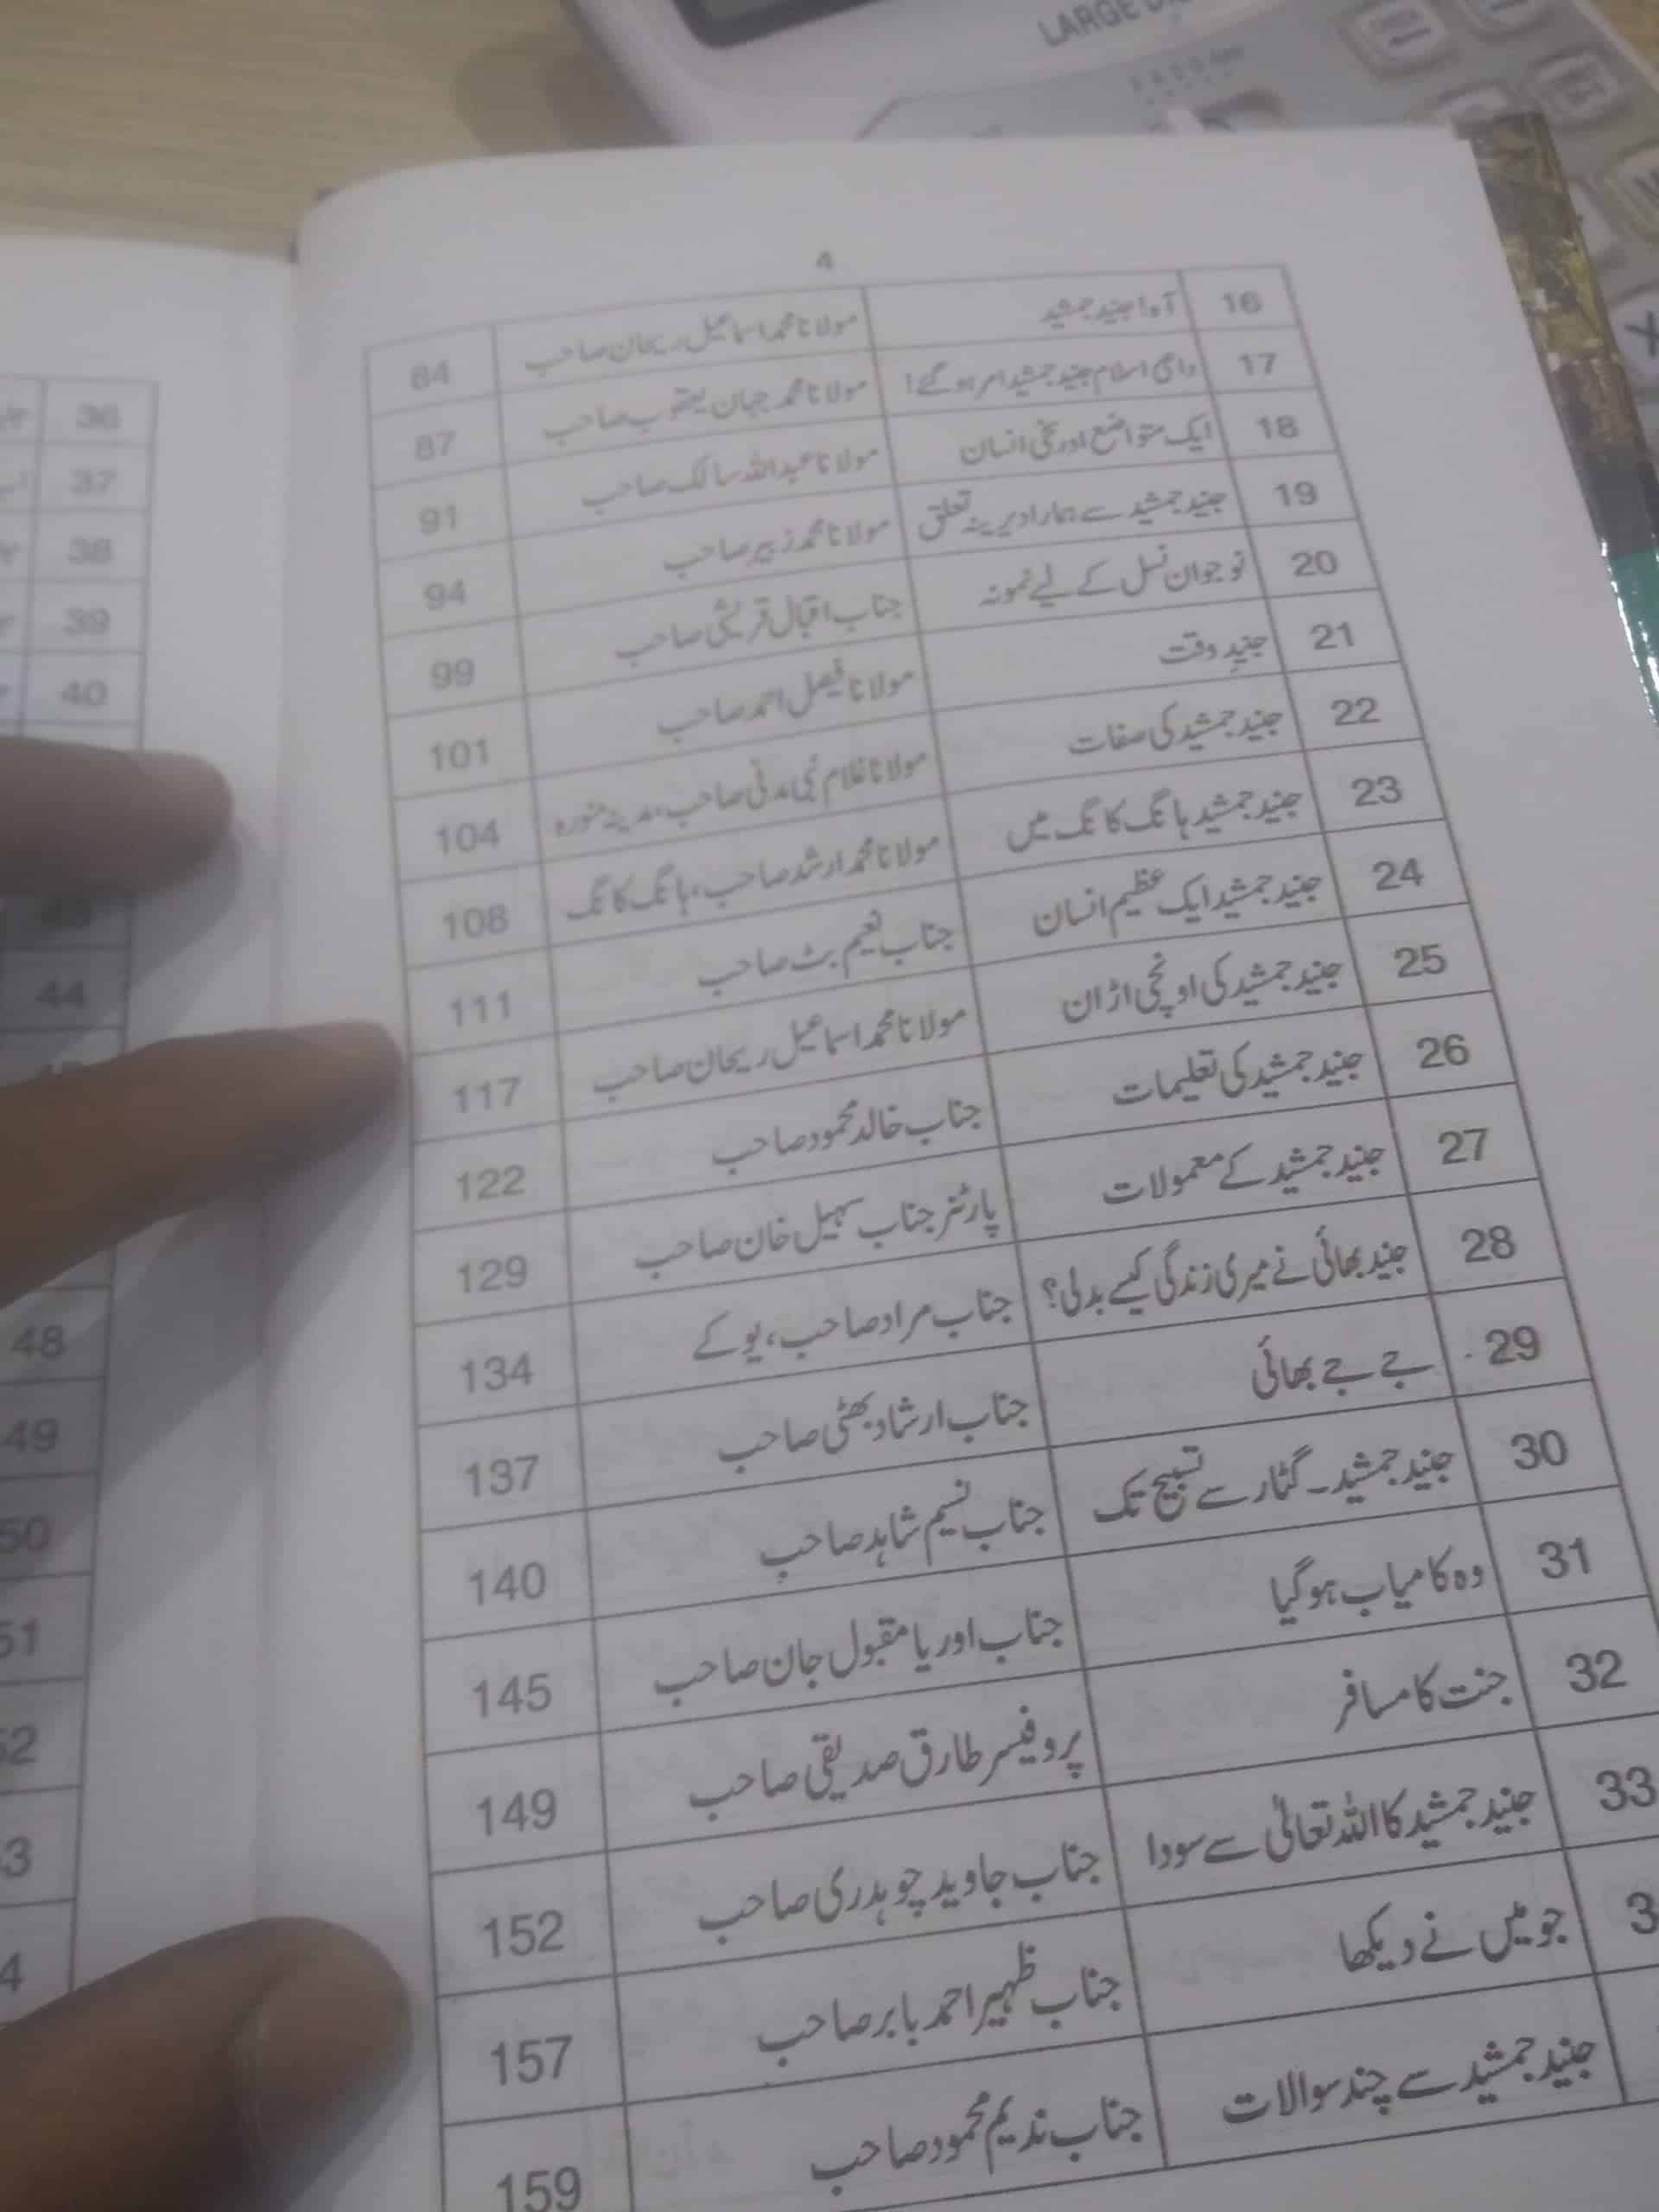 LARGE
4
16 آہ! جنید جمشید مولانا محمد اسماعیل ریحان صاحب 84
17 داعیٔ اسلام جنید جمشید امر ہو گئے! مولانا محمد جہان یعقوب صاحب 87
18 ایک متواضع اور سخی انسان مولانا عبداللہ سالک صاحب 91
19 جنید جمشید سے ہمارا دیرینہ تعلق مولانا محمد زبیر صاحب 94
20 نوجوان نسل کے لیے نمونہ جناب اقبال قریشی صاحب 99
21 جنیدِ وقت مولانا فیصل احمد صاحب 101
22 جنید جمشید کی صفات مولانا غلام نبی مدنی صاحب، مدینہ منورہ 104
23 جنید جمشید ہانگ کانگ میں مولانا محمد ارشد صاحب، ہانگ کانگ 108
24 جنید جمشید ایک عظیم انسان جناب نعیم بٹ صاحب 111
25 جنید جمشید کی اونچی اڑان مولانا محمد اسماعیل ریحان صاحب 117
26 جنید جمشید کی تعلیمات جناب خالد محمود صاحب 122
27 جنید جمشید کے معمولات پارٹنر جناب سہیل خان صاحب 129
28 جنید بھائی نے میری زندگی کیسے بدلی؟ جناب مراد صاحب، یو کے 134
29 جے جے بھائی جناب ارشاد بھٹی صاحب 137
30 جنید جمشید۔ گٹار سے تسبیح تک جناب نسیم شاہد صاحب 140
31 وہ کامیاب ہو گیا جناب اوریا مقبول جان صاحب 145
32 جنت کا مسافر پروفیسر طارق صدیقی صاحب 149
33 جنید جمشید کا اللہ تعالیٰ سے سودا جناب جاوید چوہدری صاحب 152
جو میں نے دیکھا جناب ظہیر احمد بابر صاحب 157
جنید جمشید سے چند سوالات جناب ندیم محمود صاحب 159
36
37
38
39
40
44
48
49
50
51
52